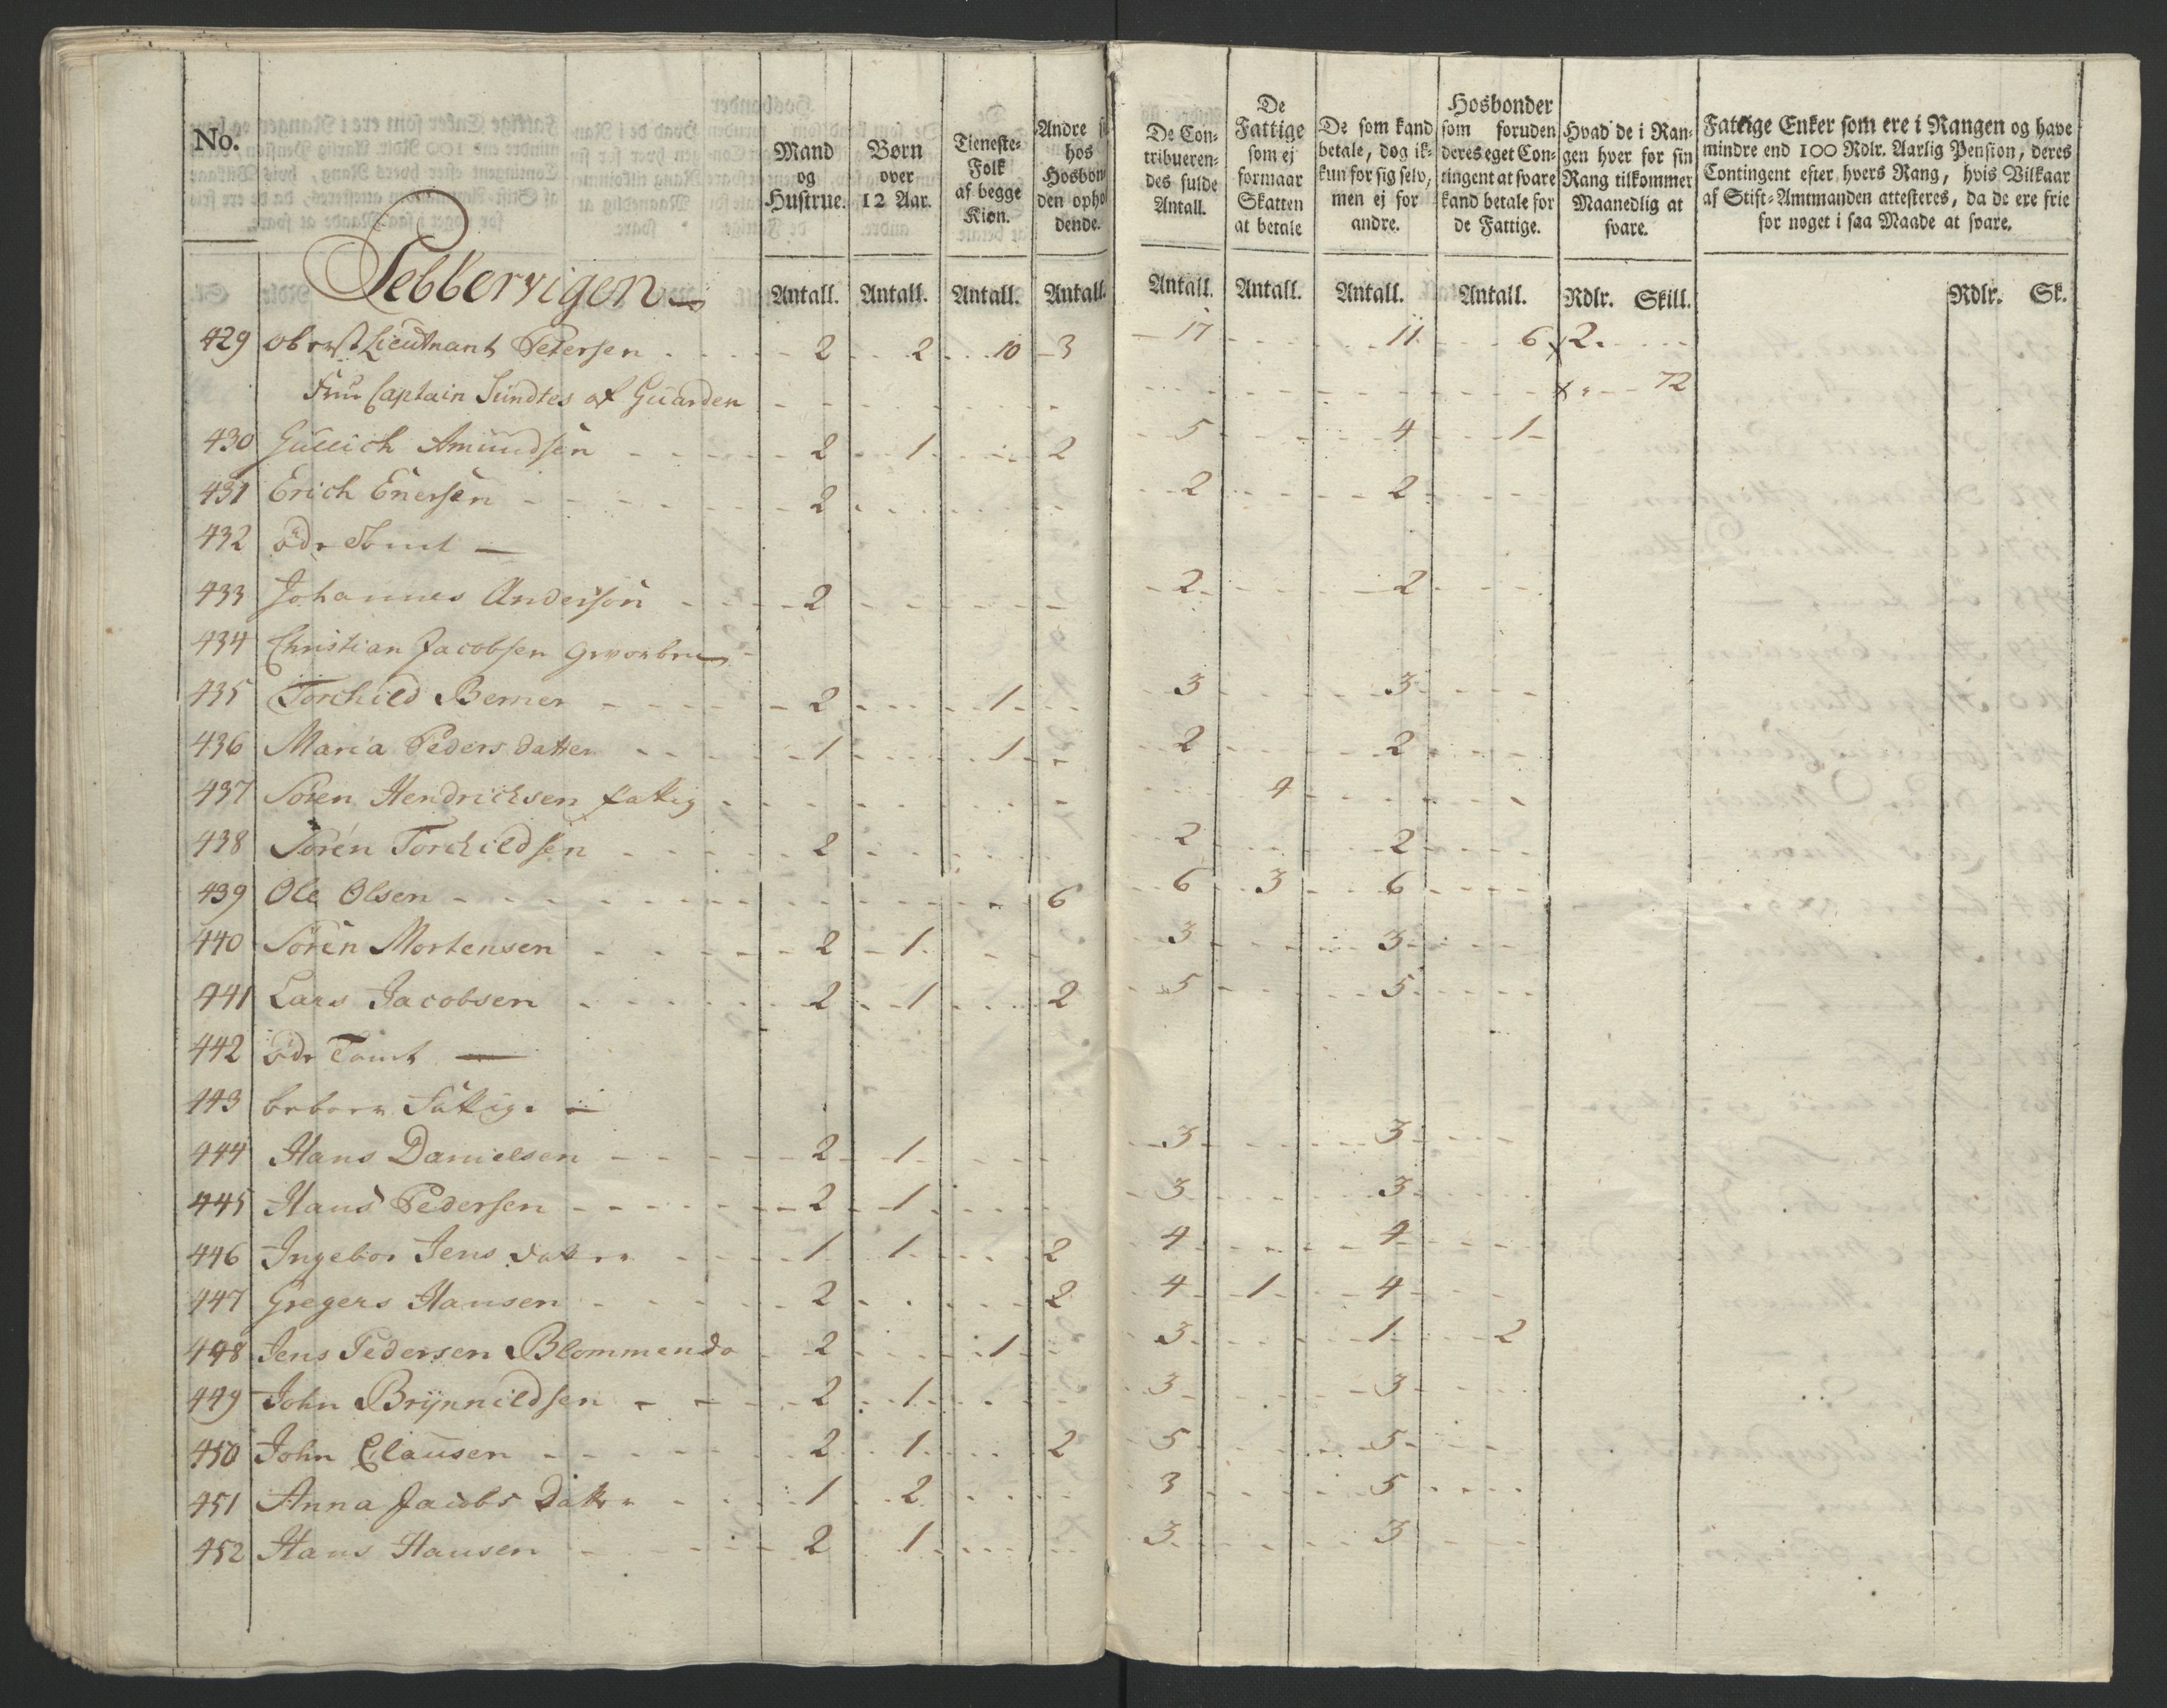 No.
Mand og Hustrue.
Børn over 12 Aar.
Tieneste-Folk af begge Kiøn.
Andre hos Hosbon den opho dende.
De Contribuerendes fulde Antall.
De Fattige som ej formaar Skatten at betale
De som kand betale, dog ikkun for sig selv, men ej for andre.
Hosbonder som foruden deres eget Contingent at svare kand betale for de Fattige.
Hvad de i Rangen hver for sin Rang tilkommer Maanedlig at svare.
Fattige Enker som ere i Rangen og have mindre end 100 Rdlr. Aarlig Pension, deres Contingent efter hvers Rang, hvis Vilkaar af Stift-Amtmanden attesteres, da de ere frie for noget i saa Maade at svare.
Antall. Antall. Antall. Antall. Antall. Antall. Antall. Antall. Rdlr. Skill. Rdlr. Sk.
Pebbervigen
429 obrist Lieutnant Petersen 2 2 10 3 17 11 6 2
Frue Captain Sundtes af Guarden 72
430 Gullich Amundsen 2 1 2 5 4 1
431 Erich Enersen 2 2 2
432 öde Tomt
433 Johannes Andersön 2 2 2
434 Christian Jacobsen
435 Torchild Berner 2 1 3 3
436 Maria Peders datter 1 1 2 2
437 Sören Hendricksen fattig 4
438 Sören Torchildsen 2 2 2
439 Ole Olsen 6 6 3 6
440 Sören Mortensen 2 1 3 3
441 Lars Jacobsen 2 1 2 5 5
442 öde Tomt
443 beboes Fattige
444 Hans Danielsen 2 1 3 3
445 Hans Pedersen 2 1 3 3
446 Ingebor Jens datter 1 1 2 4 4
447 Gregers Hansen 2 2 4 1 4
448 Jens Pedersen Blommendo 2 1 3 1 2
449 John Brÿnnildsen 2 1 3 3
450 John Clausen 2 1 2 5 5
451 Anna Jacobs Datter 1 2 3 5
452 Hans Hansen 2 1 3 3